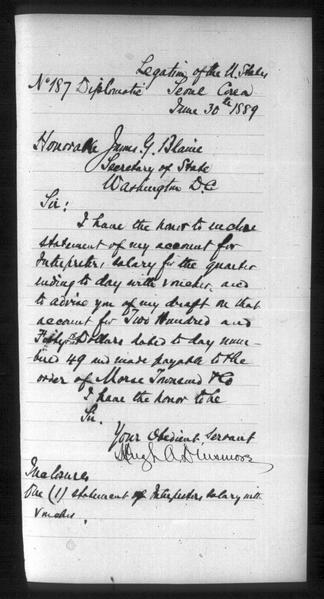 Legation of the U. States
No 187 Diplomatic Seoul Corea
June 30th 1889
Honorable James G. Blaine
Secretary of State
Washington D.C
Sir:
I have the honor to enclose
statement of my account for
Interpreters salary for the quarter
ending to day with voucher, and
to advise you of my draft on that
account for Two Hundred and
Fifty Dollars dated to day num-
bered 49 and made payable to the
order of Morse Townsend & Co
I have the honor to be
Sir.
Your Obedient Servant
Hugh A. Dinsmore
Inclosures
One (1) statement of Interpreters salary with
voucher.